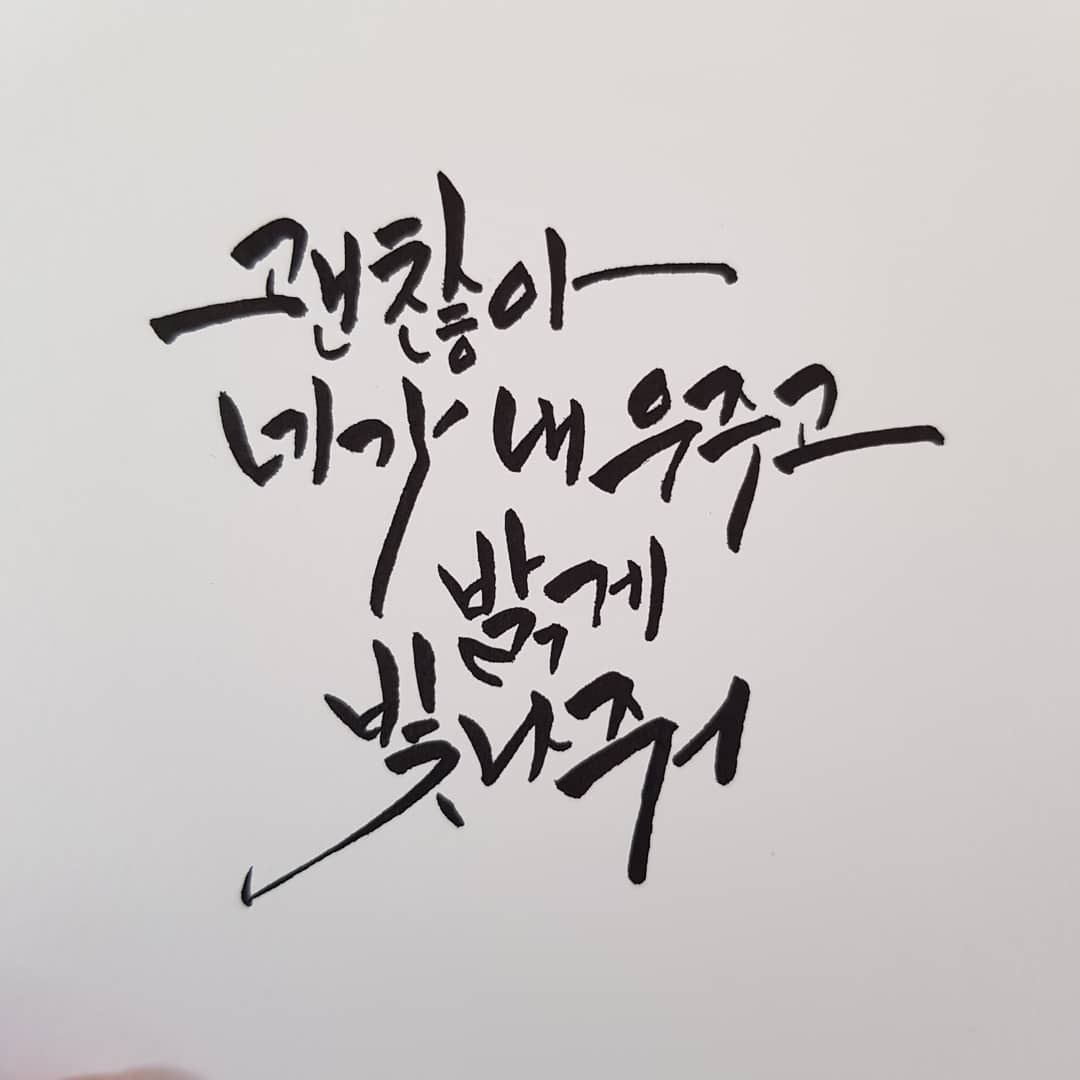 괜찮아
네가 내 우주고
밝게
빛나줘